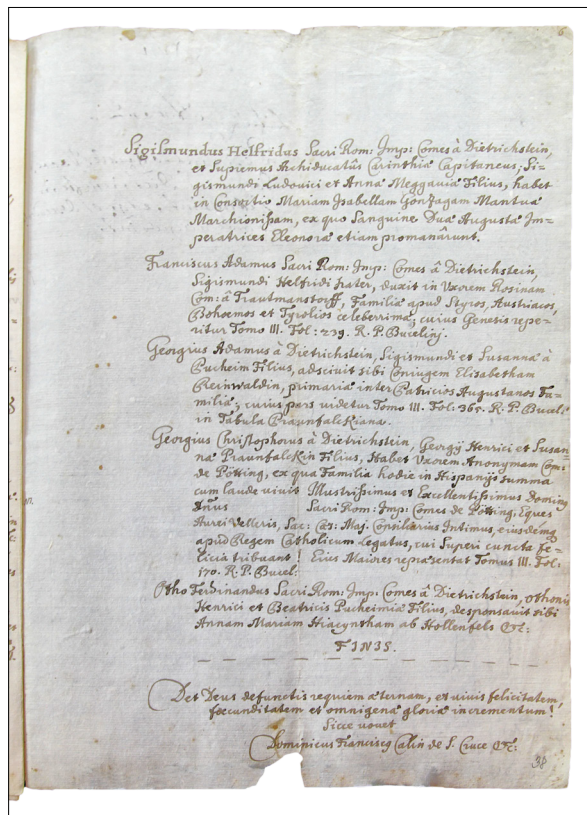 6
Sigismundus Helfridus Sacri Rom: Imp: Comes à Dietrichstein,
et Supremus Archiducatûs Carinthiæ Capitaneus, Si-
gismundi Ludovici et Annæ Meggaviæ Filius, habet
in Consortio Mariam Isabellam Gonzagam Mantuæ
Marchionissam, ex quo Sanguine Duæ Augustæ Im-
peratrices Eleonoræ etiam promanârunt.
Franciscus Adamus Sacri Rom: Imp: Comes â Dietrichstein,
Sigismundi Helfridi frater, duxit in Uxorem Rosinam
Com: â Trautmanstorff, Familia apud Styros, Austriacos,
Bohoemos et Tyrolios celeberrima, cuius Genesis repe-
ritur Tomo III. Fol: 239. R. P. Bucelinj.
Georgius Adamus à Dietrichstein, Sigismundi et Susannæ à
Pucheim Filius, adsciuit sibi Coniugem Elisabetham
Reinwaldin, primariâ inter Patricios Augustanos Fa-
miliâ; cuius pars uidetur Tomo III. Fol: 365. R. P. Bucel:
in Tabula Praunfalckiana.
Georgius Christophorus à Dietrichstein, Georgij Henrici et Susan
næ Praunfalckin Filius, Habet Uxorem Anonymam Com:
de Pötting, ex qua Familia hodie in Hispanijs summa
cum laude uiuit Illustrissimus et Excellentissimus Doming
Dnus Sacri Rom: Imp: Comes de Pötting, Eques
Aurei Velleris, Sac: Cæs: Maj: Consiliarius Intimus, eiusdemq
apud Regem Catholicum Legatus, cui Superi cuncta fe-
licia tribuant! Eius Maiores repræsentat Tomus III. Fol:
170. R. P. Bucel:
Otho Ferdinandus Sacri Rom: Imp: Comes â Dietrichstein, Othonis
Henrici et Beatricis Pucheimiæ Filius, desponsauit sibi
Annam Mariam Hiacyntham ab Hollenfels &c:
FINIS.
Det Deus defunctis requiem æternam, et uiuis felicitatem,
fœcunditatem et omnigenæ gloriæ incrementum!
Sicce uouet
Dominicus Franciscq Calin de S. Cruce &c:
38